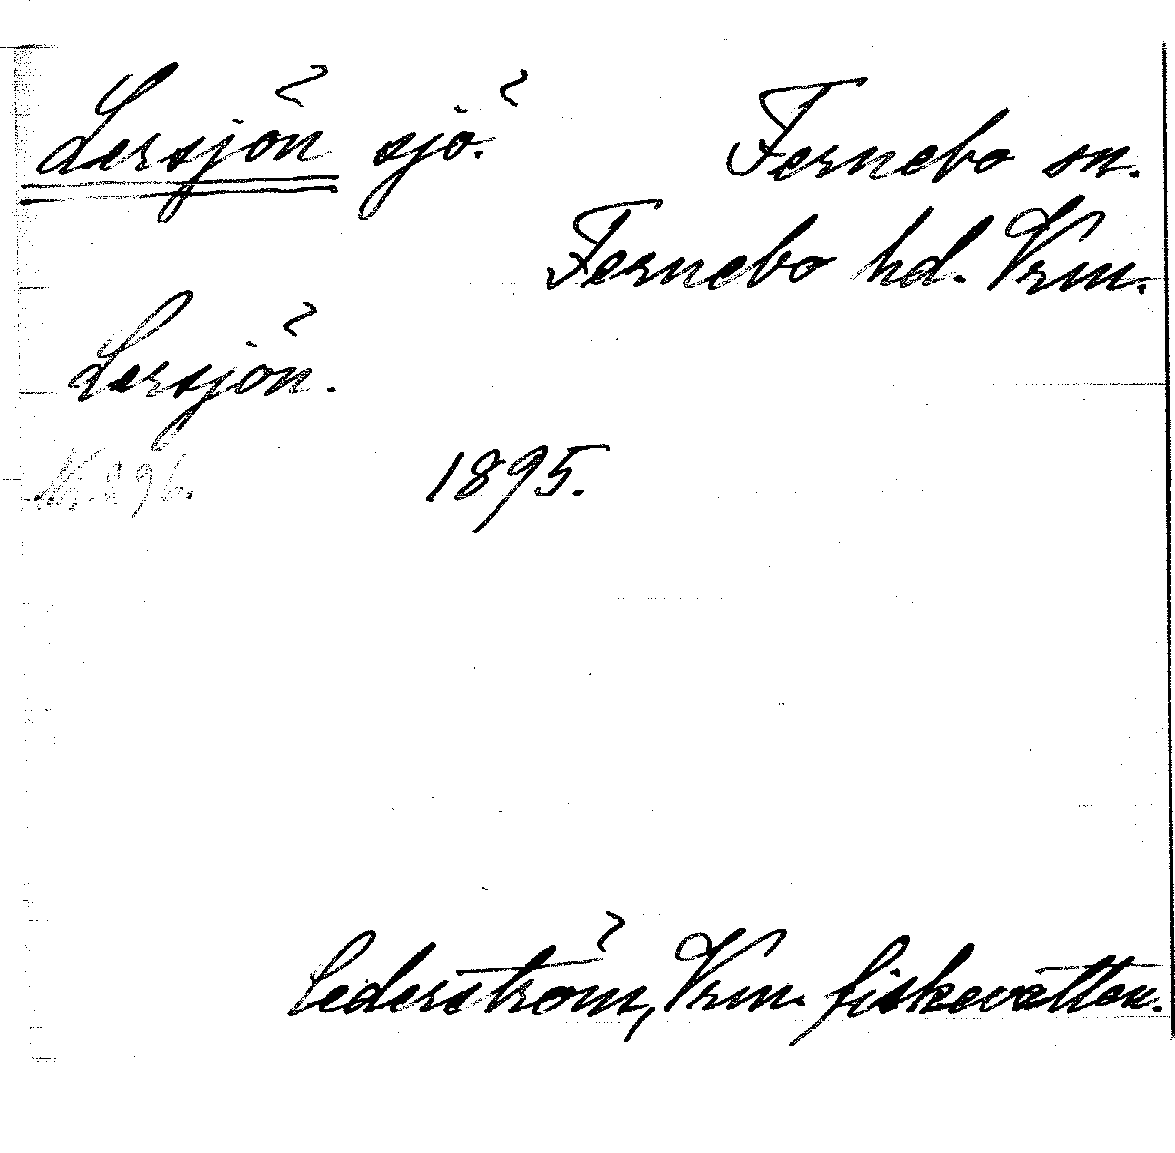 Lersjön sjö.
Fernebo sn.
Fernebo hd. Vrm.
Lersjön.
Nr. 296. 1895.
Cederström, Vrm. fiskevatten.